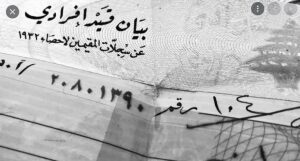 بيان قيد إفرادي
عن سجلات المقيمين لاحصاء ١٩٣٢
٢٠٨٠١٣٩٠ رقم ١٠٤